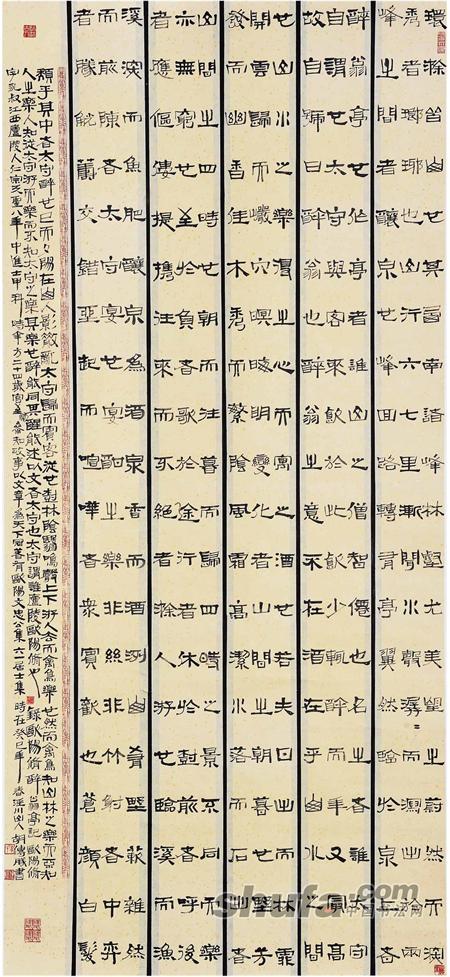 環滁皆山也其西南諸峰林壑尤美望之蔚然而深
秀者瑯琊也山行六七里漸聞水聲潺潺而瀉出於兩
峰之間者釀泉也峰回路轉有亭翼然臨於泉上者
醉翁亭也作亭者誰山之僧智僊也名之者誰太守
自謂也太守與客來飲於此飲少輒醉而年又最高
故自號曰醉翁也醉翁之意不在酒在乎山水之間
也山水之樂得之心而寓之酒也若夫日出而林霏
開雲歸而巖穴暝晦明變化者山間之朝暮也野芳
發而幽香佳木秀而繁陰風霜高潔水落而石出者
山間之四時也朝而往暮而歸四時之景不同而樂
亦無窮也至於負者歌於途行者休於樹前者呼後
者應傴僂提攜往來而不絕者滁人游也臨溪而漁
溪深而魚肥釀泉為酒泉香而酒洌山肴野蔌雜然
而前陳者太守宴也宴酣之樂非絲非竹射者中弈
者勝觥籌交錯坐起而喧嘩者眾賓歡也蒼顏白髮
頹乎其中者太守醉也已而夕陽在山人影散亂太守歸而賓客從也樹林陰翳鳴聲上下游人去而禽鳥樂也然而禽鳥知山林之樂而不知
人之樂人知從太守游而樂而不知太守之樂其樂也醉能同其樂醒能述以文者太守也太守謂誰廬陵歐陽脩也 錄歐陽脩醉翁亭記 歐陽脩
字永叔江西廬陵人仁宗天聖八年中進士甲科時年方二十四歲官至參知政事以文章為天下 著有歐陽文忠公集六一居士集 時在癸巳年春 汪川山人胡書
shufa.com
中国书法网